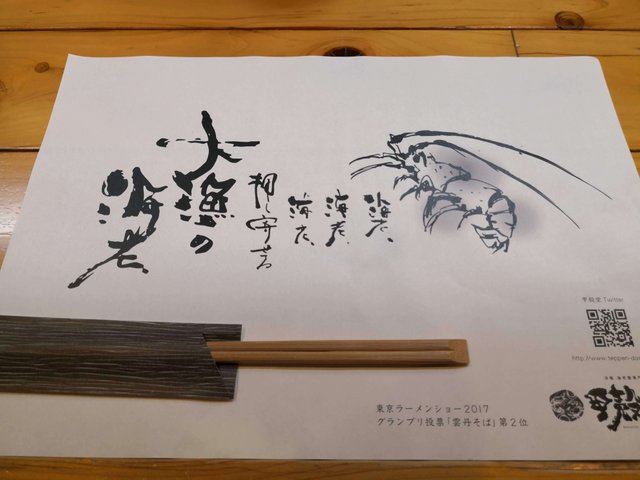 海老、
海老、
海老、
押し寄せる
大漁の
海老。
甲殻堂 Twitter
東京ラーメンショー2017
グランプリ投票「雲丹そば」第2位